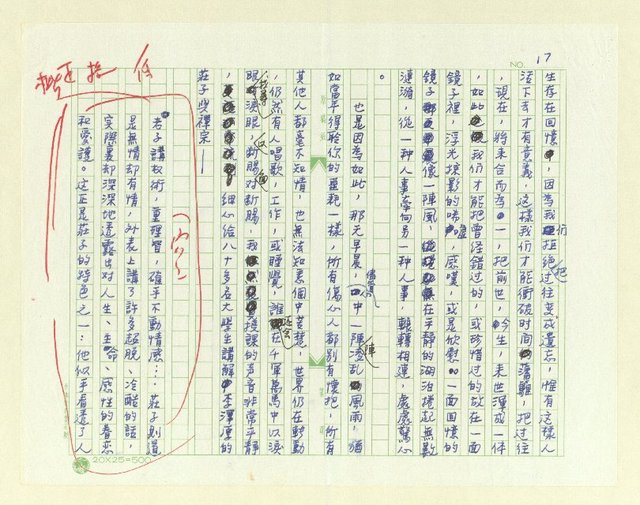 NO. 17
生存在回憶，因為我們拒絕把過往變成遺忘，惟有這樣人
活下去才有意義，這樣我們才能衝破時間藩籬，把過往
，現在，將來合而為一，把前世，今生，來世渾成一体
，如此我們才能把曾經錯過的，或珍惜過的放在一面
鏡子裡，浮光掠影的唏噓，感嘆，或是欣慰。一面回憶的
鏡子像一陣風，在平靜的湖泊捲起無數
漣漪，從一種人事奔向另一種人事，輾轉相連，處處驚心
。
也是因為如此，那天早晨，心中一陣凌亂風雨，猶
如當年得聆你的噩耗一樣，所有傷心人都別有懷抱，所有
其他人都毫不知情，也無法知悉個中苦楚，世界仍在轉動
，仍然有人唱歌，工作，或睡覺，誰還會在千軍萬馬中以淚
眼對淚眼，斷腸對斷腸，我接課的聲音非常平靜
，細心給八十多名大學生講解李澤厚的
莊子與禪宗——
老子講权術，重理智，確乎不動情感…莊子則道
是無情却有情，外表上講了許多超脫、冷酷的話，
实際裏却深深地透露出对人生、生命、感性的眷恋
和爱護。这正是莊子的特色之一：他似乎看透了人
(内〻)
楷正 仿
20X25=500